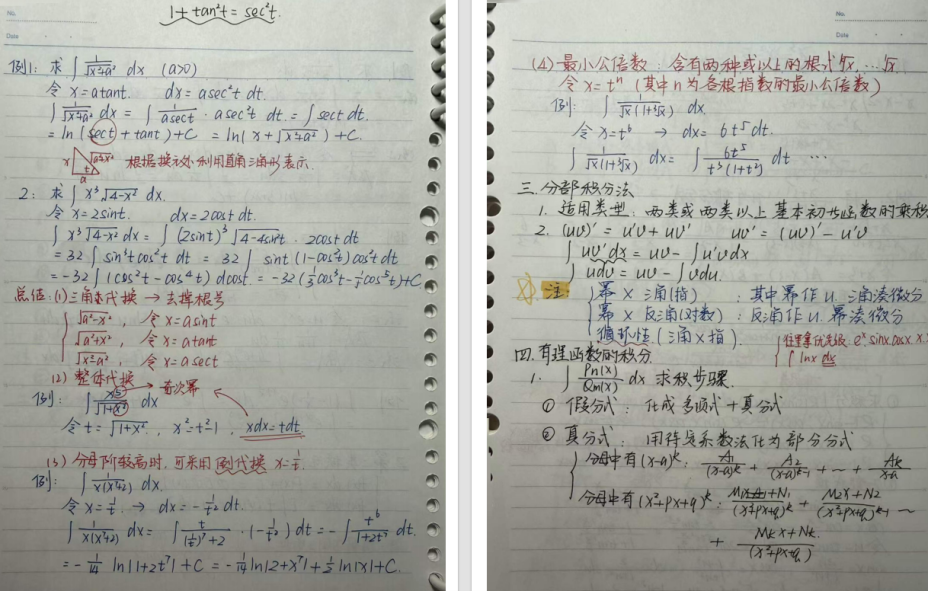 No.
Date
1 + tan²t = sec²t.
例1: 求 ∫ 1/√(x²+a²) dx (a>0)
令 x=atant. dx = asec²t dt.
∫ 1/√(x²+a²) dx = ∫ 1/asect · asec²t dt. = ∫ sect dt.
= ln(sect + tant)+C = ln(x+√(x²+a²)) + C.
x √(a²+x²) t a 根据换元处利用直角三角形表示.
2: 求 ∫ x³√(4-x²) dx.
令 x=2sint. dx=2cost dt.
∫ x³√(4-x²) dx = ∫ (2sint)³ √(4-4sin²t) · 2cost dt
= 32 ∫ sin³t cos²t dt = 32 ∫ sint (1-cos²t) cos²t dt
= -32 ∫ (cos²t - cos⁴t) dcost = -32(1/3 cos³t - 1/5 cos⁵t)+C
总结: (1) 三角代换 → 去掉根号
√(a²-x²), 令 x=asint
√(a²+x²), 令 x=atant
√(x²-a²), 令 x=asect
(2) 整体代换
例: ∫ x⁵/√(1+x²) dx 奇次幂
令 t=√(1+x²), x²=t²-1, xdx=tdt
(3) 分母阶较高时, 可采用 倒代换 x=1/t.
例: ∫ 1/x(x⁷+2) dx.
令 x=1/t. → dx=-1/t² dt.
∫ 1/x(x⁷+2) dx = ∫ t/((1/t)⁷+2) · (-1/t²) dt = -∫ t⁶/(1+2t⁷) dt.
= -1/14 ln|1+2t⁷|+C = -1/14 ln|2+x⁷|+1/2 ln|x|+C.
No.
Date
(4) 最小公倍数: 含有两种或以上的根式 ⁿ√x, … ⁿ√x.
令 x=tⁿ (其中n为各根指数的最小公倍数)
例: ∫ 1/√x(1+³√x) dx.
令 x=t⁶ → dx=6t⁵dt.
∫ 1/√x(1+³√x) dx = ∫ 6t⁵/t³(1+t²) dt …
三. 分部积分法
1. 适用类型: 两类或两类以上基本初等函数的乘积
2. (uv)' = u'v + uv' uv' = (uv)' - u'v
∫ uv'dx = uv - ∫ u'vdx
∫ udv = uv - ∫ vdu.
注: 幂 × 三角(指) : 其中幂作u. 三角凑微分
幂 × 反三角(对数) : 反三角作u. 幂凑微分
循环性 (三角×指).
eˣ sinx cosx x
∫ lnx dx
四. 有理函数的积分
1. ∫ Pn(x)/Qm(x) dx 求积步骤.
① 假分式: 化成多项式+真分式
② 真分式: 用待定系数法化为部分分式
分母中有(x-a)ᵏ: A1/(x-a)ᵏ + A2/(x-a)ᵏ⁻¹ + ~ + Ak/(x-a)
分母中有(x²+px+q)ᵏ: M1x+N1/(x²+px+q)ᵏ + M2x+N2/(x²+px+q)ᵏ⁻¹ ~
+ Mkx+Nk/(x²+px+q)